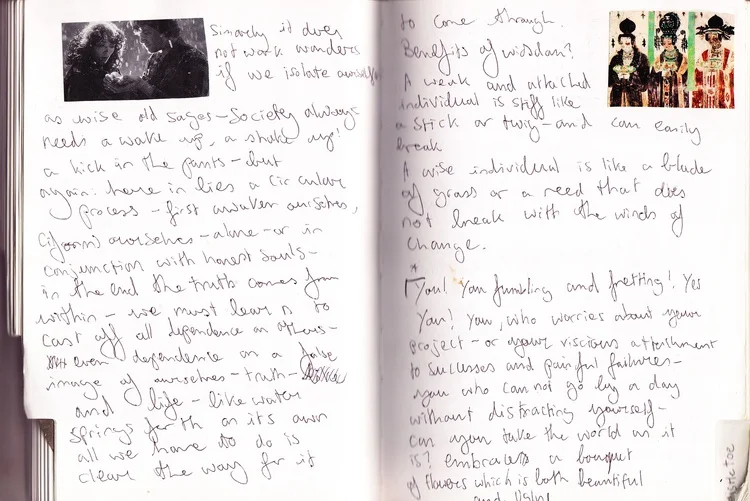 Sinarly it does
not work wonders
if we isolate ourselfs
as wise old sages - Society always
needs a wake up, a shake up!
a kick in the pants - but
again: here in lies a circular
process - first awaken ourselves,
ourselves - alone - or in
conjunction with honest souls -
in the end the truth comes from
within - we must learn to
cast off all dependence on others -
even dependence on a false
image of ourselves - truth -
and life - like water
springs forth on its own
all we have to do is
clear the way for it
to come through.
Benefits of wisdom?
A weak and attached
individual is stiff like
a stick or twig - and can easily
break
A wise individual is like a blade
of grass or a reed that does
not break with the winds of
change.
*
You! You fumbling and fretting! Yes
You! You, who worries about your
project - or your viscious attachment
to successes and painful failures -
you who can not go by a day
without distracting yourself -
can you take the world as it
is? embrace a bouquet
of flowers which is both beautiful
and Ugly!